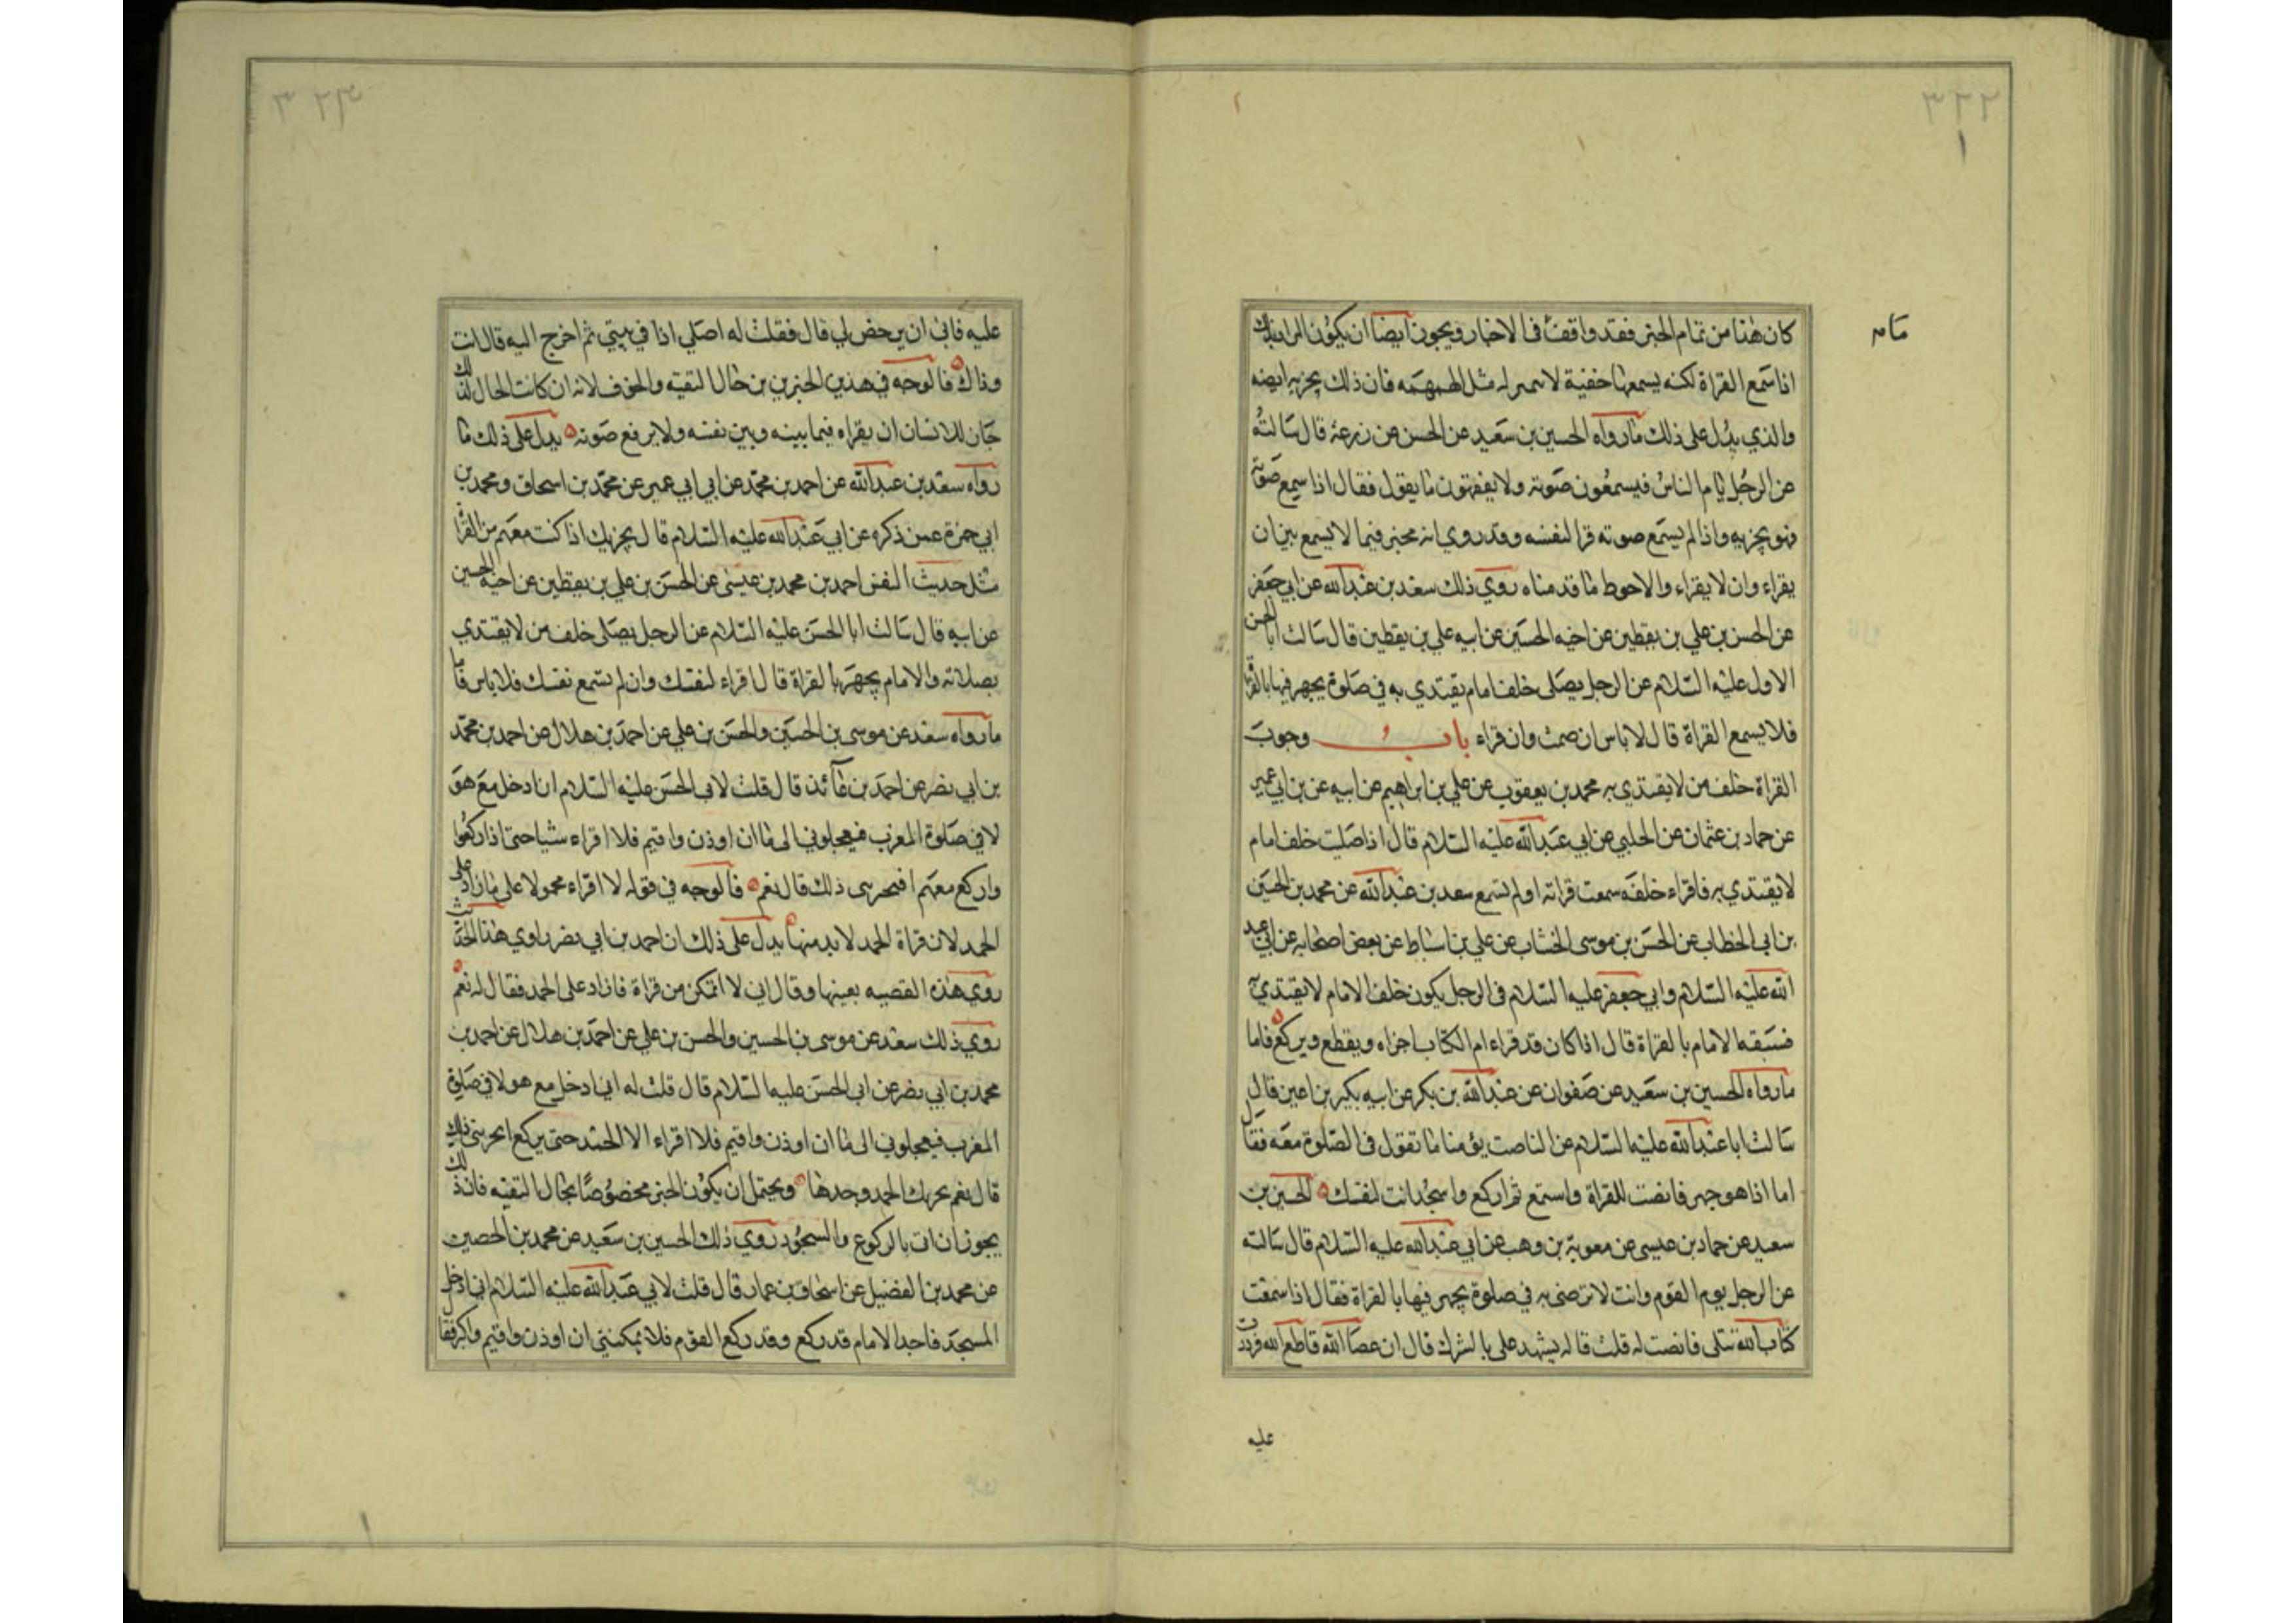 ٣٢٢
كان هذا من تمام الخبر فقد واقفت فى الاخبار ويجوز ايضا ان يكون المراد بذلك
اذا سمع القراة لكنه يسمعها خفية لا مثل الهمهمه فان ذلك يجزيه ايضه
والذي يدل على ذلك مارواه الحسين بن سعيد عن الحسن عن زرعة قال سالته
عن الرجل يام الناس فيسمعون صوته ولا يفقهون ما يقول فقال اذا سمع صوته
فهو يجزيه واذا لم يسمع صوته قرا لنفسه وقد روي انه مخير فيما لا يسمع بين ان
يقراء وان لا يقراء والاحوط ما قدمناه روي ذلك سعد بن عبد الله عن ابي جعفر
عن الحسن بن علي بن يقطين عن اخيه الحسين عن ابيه علي بن يقطين قال سالت ابا الحسن
الاول عليه السلام عن الرجل يصلى خلف امام يقتدي به في صلوة يجهر فيها بالقراة
فلا يسمع القراة قال لا باس ان صمت وان قراء باب وجوب
القراة خلف من لا يقتدي به محمد بن يعقوب عن علي بن ابراهيم عن ابيه عن بن ابي عمير
عن حماد بن عثمان عن الحلبي عن ابي عبد الله عليه السلام قال اذا صليت خلف امام
لا يقتدي به فاقراء خلفه سمعت قراته او لم تسمع سعد بن عبد الله عن محمد بن الحسين
بن ابي الخطاب عن الحسن بن موسى الخشاب عن علي بن اسباط عن بعض اصحابه عن ابي عبد
الله عليه السلام وابي جعفر عليه السلام فى الرجل يكون خلف الامام لا يقتدي به
فسبقه الامام بالقراة قال اذا كان قد قراء ام الكتاب اجزاه ويقطع ويركع فاما
مارواه الحسين بن سعيد عن صفوان عن عبد الله بن بكر عن ابيه بكير بن اعين قال
سالت ابا عبد الله عليه السلام عن الناصب يؤمنا ما تقول فى الصلوة معه فقال
اما اذا هو جهر فانصت للقراة واستمع ثم اركع واسجد انت لنفسك الحسين بن
سعيد عن حماد بن عيسى عن معوية بن وهب عن ابي عبد الله عليه السلام قال سالته
عن الرجل يوم القوم وانت لا ترضى به في صلوة يجهر فيها بالقراة فقال اذا سمعت
كتاب الله تتلى فانصت له قلت فانه يشهد على بالشرك قال ان عصا الله فاطع الله فرددت
عليه
٣٢٣
عليه فابى ان يرخص لي قال فقلت له اصلي اذا في بيتي ثم اخرج اليه قال انت
وذاك فالوجه في هذين الخبرين من حال التقيه والخوف لانه ان كانت الحال كذلك
جاز للانسان ان يقراه فيما بينه وبين نفسه ولا يرفع صوته يدل على ذلك ما
رواه سعد بن عبد الله عن احمد بن محمد عن ابي ابي عمير عن محمد بن اسحاق ومحمد بن
ابي حمزة عمن ذكره عن ابي عبد الله عليه السلام قال يجزيك اذا كنت معهم من القراة
مثل حديث النفس احمد بن محمد بن عيسى عن الحسن بن علي بن يقطين عن اخيه الحسين
عن ابيه قال سالت ابا الحسن عليه السلام عن الرجل يصلى خلف من لا يقتدي
بصلاته والامام يجهر بالقراة قال اقراء لنفسك وان لم تسمع نفسك فلا باس فاما
مارواه سعد عن موسى بن الحسين والحسن بن علي عن احمد بن هلال عن احمد بن محمد
بن ابي نصر عن احمد بن عائذ قال قلت لابى الحسن عليه السلام انا ادخل مع هؤ
لا في صلوة المغرب فيعجلوني الى ما ان اوذن واقيم فلا اقراء شيا حتى اذا ركعوا
واركع معهم افيجزى ذلك قال نعم فالوجه في قوله لا اقراء محمولا على ما زاد على
الحمد لان قراة الحمد لا بد منها يدل على ذلك ان احمد بن ابي نصر راوي هذا الحديث
روي هذه القصيه بعينها وقال اني لا اتمكن من قراة ما زاد على الحمد فقال له نعم
روي ذلك سعد عن موسى بن الحسين والحسن بن علي عن احمد بن هلال عن احمد بن
محمد بن ابي نصر عن ابى الحسن عليه السلام قال قلت له اني ادخل مع هولا في صلوة
المغرب فيعجلوني الى ما ان اوذن واقيم فلا اقراء الا الحمد حتى يركع ايجزينى ذلك
قال نعم يجزيك الحمد وحدها ويحتمل ان يكون الخبر مخصوصا بحال التقيه فان ذلك
يجوز ان ات بالركوع والسجود روي ذلك الحسين بن سعيد عن محمد بن الحصين
عن محمد بن الفضيل عن اسحاق بن عمار قال قلت لابي عبد الله عليه السلام اني ادخل
المسجد فاجد الامام قد ركع وقد ركع القوم فلا يمكننى ان اوذن واقيم واكبر فقال